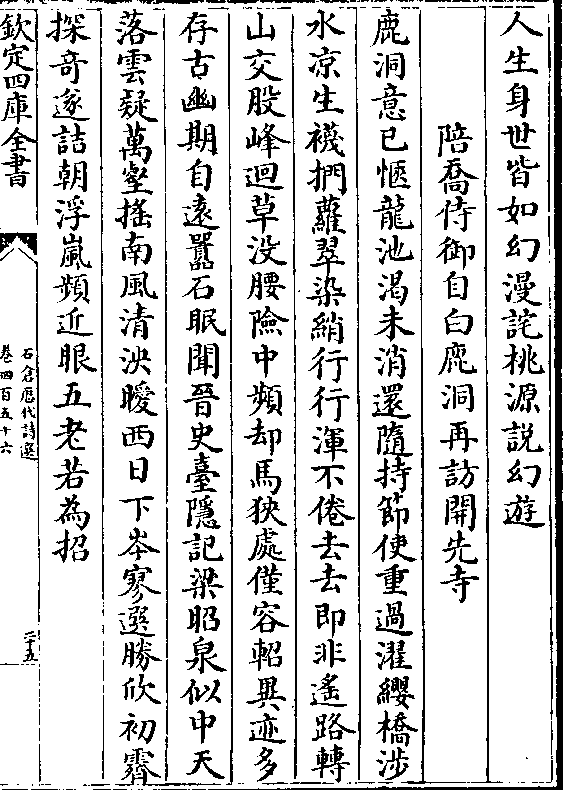 人生身世皆如幻漫詫桃源説幻遊
陪喬侍御自白鹿洞再訪開先寺
鹿洞意已愜龍池渴未消還隨持節使重過濯纓橋涉
水凉生襪捫蘿翠染綃行行渾不倦去去即非遙路轉
山交股峰迴草没腰險中頻却馬狹處僅容軺異迹多
存古幽期自遠囂石眠聞晉史臺隱記梁昭泉似中天
落雲疑萬壑摇南風清泱曖西日下岑寥選勝欣初霽
探奇遂詰朝浮嵐頻近眼五老若為招
欽定四庫全書
石倉歷代詩選
卷四百五十六
三十五